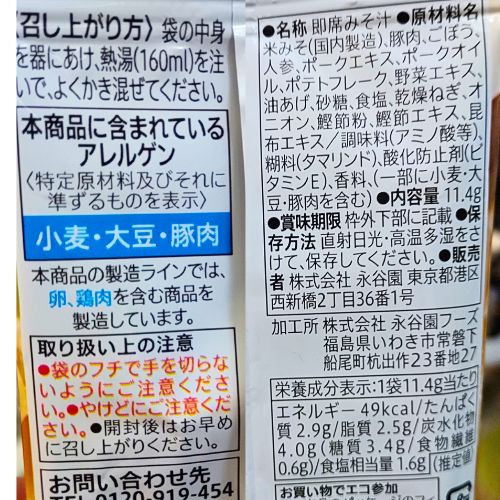 召し上がり方〉袋の中身
を器にあけ、熱湯(160ml)を注
いで、よくかき混ぜてください。
本商品に含まれている
アレルゲン
〈特定原材料及びそれに
準ずるものを表示〉
小麦・大豆・豚肉
本商品の製造ラインでは、
卵、鶏肉を含む商品を
製造しています。
取り扱い上の注意
●袋のフチで手を切らな
いようにご注意くださ
い。●やけどにご注意くだ
さい。●開封後はお早め
に召し上がりください。
お問い合わせ先
TEL 0120-919-454
●名称 即席みそ汁 ●原材料名
米みそ(国内製造)、豚肉、ごぼう、
人参、ポークエキス、ポークオイ
ル、ポテトフレーク、野菜エキス、
油あげ、砂糖、食塩、乾燥ねぎ、オ
ニオン、鰹節粉、鰹節エキス、昆
布エキス/調味料(アミノ酸等)、
糊料(タマリンド)、酸化防止剤(ビ
タミンE)、香料、(一部に小麦・大
豆・豚肉を含む) ●内容量 11.4g
●賞味期限 枠外下部に記載 ●保
存方法 直射日光・高温多湿をさ
けて、保存してください。●販売
者 株式会社 永谷園 東京都港区
西新橋2丁目36番1号
加工所 株式会社 永谷園フーズ
福島県いわき市常磐下
船尾町杭出作23番地27
栄養成分表示:1袋11.4g当たり
エネルギー 49kcal/たんぱく
質 2.9g/脂質 2.5g/炭水化物
4.0g(糖質 3.4g/食物繊維
0.6g)/食塩相当量 1.6g (推定値)
お買い物でエコ参加